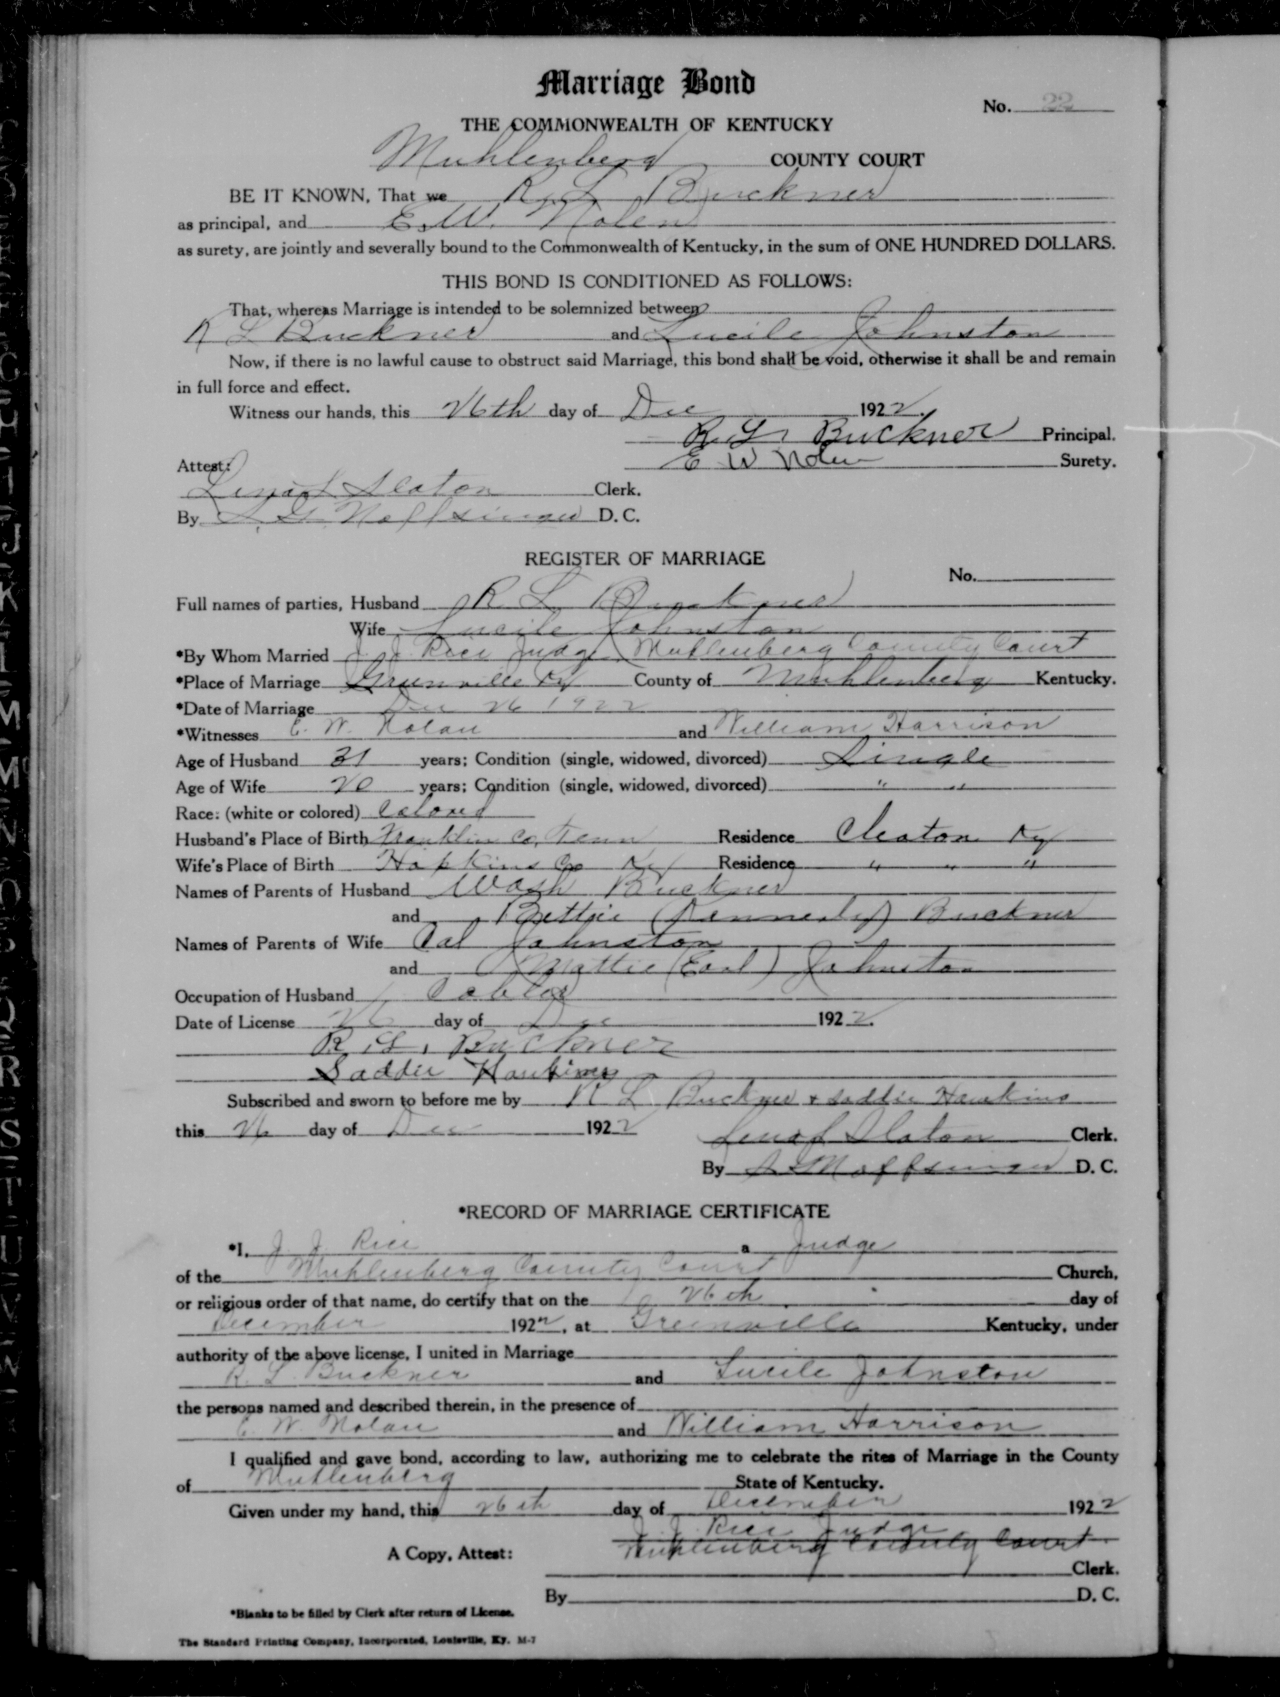 Marriage Bond
No. 22
THE COMMONWEALTH OF KENTUCKY
Muhlenberg COUNTY COURT
BE IT KNOWN, That we R. L. Buckner
as principal, and E. W. Nolen
as surety, are jointly and severally bound to the Commonwealth of Kentucky, in the sum of ONE HUNDRED DOLLARS.
THIS BOND IS CONDITIONED AS FOLLOWS:
That, whereas Marriage is intended to be solemnized between
R L Buckner and Lucile Johnston
Now, if there is no lawful cause to obstruct said Marriage, this bond shall be void, otherwise it shall be and remain
in full force and effect.
Witness our hands, this 26th day of Dec 1922.
R. L. Buckner Principal.
Attest: E W Nolen Surety.
Lena L Slaton Clerk.
By L. G. Noffsinger D. C.
REGISTER OF MARRIAGE
No.
Full names of parties, Husband R L Buckner
Wife Lucile Johnston
*By Whom Married J. J. Rice Judge Muhlenberg County Court
*Place of Marriage Greenville Ky County of Muhlenberg Kentucky.
*Date of Marriage Dec 26 1922
*Witnesses E. W. Nolan and William Harrison
Age of Husband 31 years; Condition (single, widowed, divorced) Single
Age of Wife 20 years; Condition (single, widowed, divorced) " "
Race: (white or colored) Colored
Husband's Place of Birth Franklin Co, Tenn Residence Cleaton Ky
Wife's Place of Birth Hopkins Co Ky Residence " " "
Names of Parents of Husband Wash Buckner
and Bettie (Kennerly) Buckner
Names of Parents of Wife Cal Johnston
and Mattie (Earl) Johnston
Occupation of Husband
Date of License 26 day of Dec 1922.
R. L. Buckner
Saddie Hawkins
Subscribed and sworn to before me by R L Buckner + Saddie Hawkins
this 26 day of Dec 1922 Lena L Slaton Clerk.
By L G Noffsinger D. C.
*RECORD OF MARRIAGE CERTIFICATE
*I, J. J. Rice a Judge
of the Muhlenberg County Court Church,
or religious order of that name, do certify that on the 26th day of
December 1922, at Greenville Kentucky, under
authority of the above license, I united in Marriage
R. L. Buckner and Lucile Johnston
the persons named and described therein, in the presence of
E. W. Nolan and William Harrison
I qualified and gave bond, according to law, authorizing me to celebrate the rites of Marriage in the County
of Muhlenberg State of Kentucky.
Given under my hand, this 26th day of December 1922
J. J. Rice Judge
A Copy, Attest: Muhlenberg County Court
Clerk.
By D. C.
*Blanks to be filled by Clerk after return of License.
The Standard Printing Company, Incorporated, Louisville, Ky. M-7